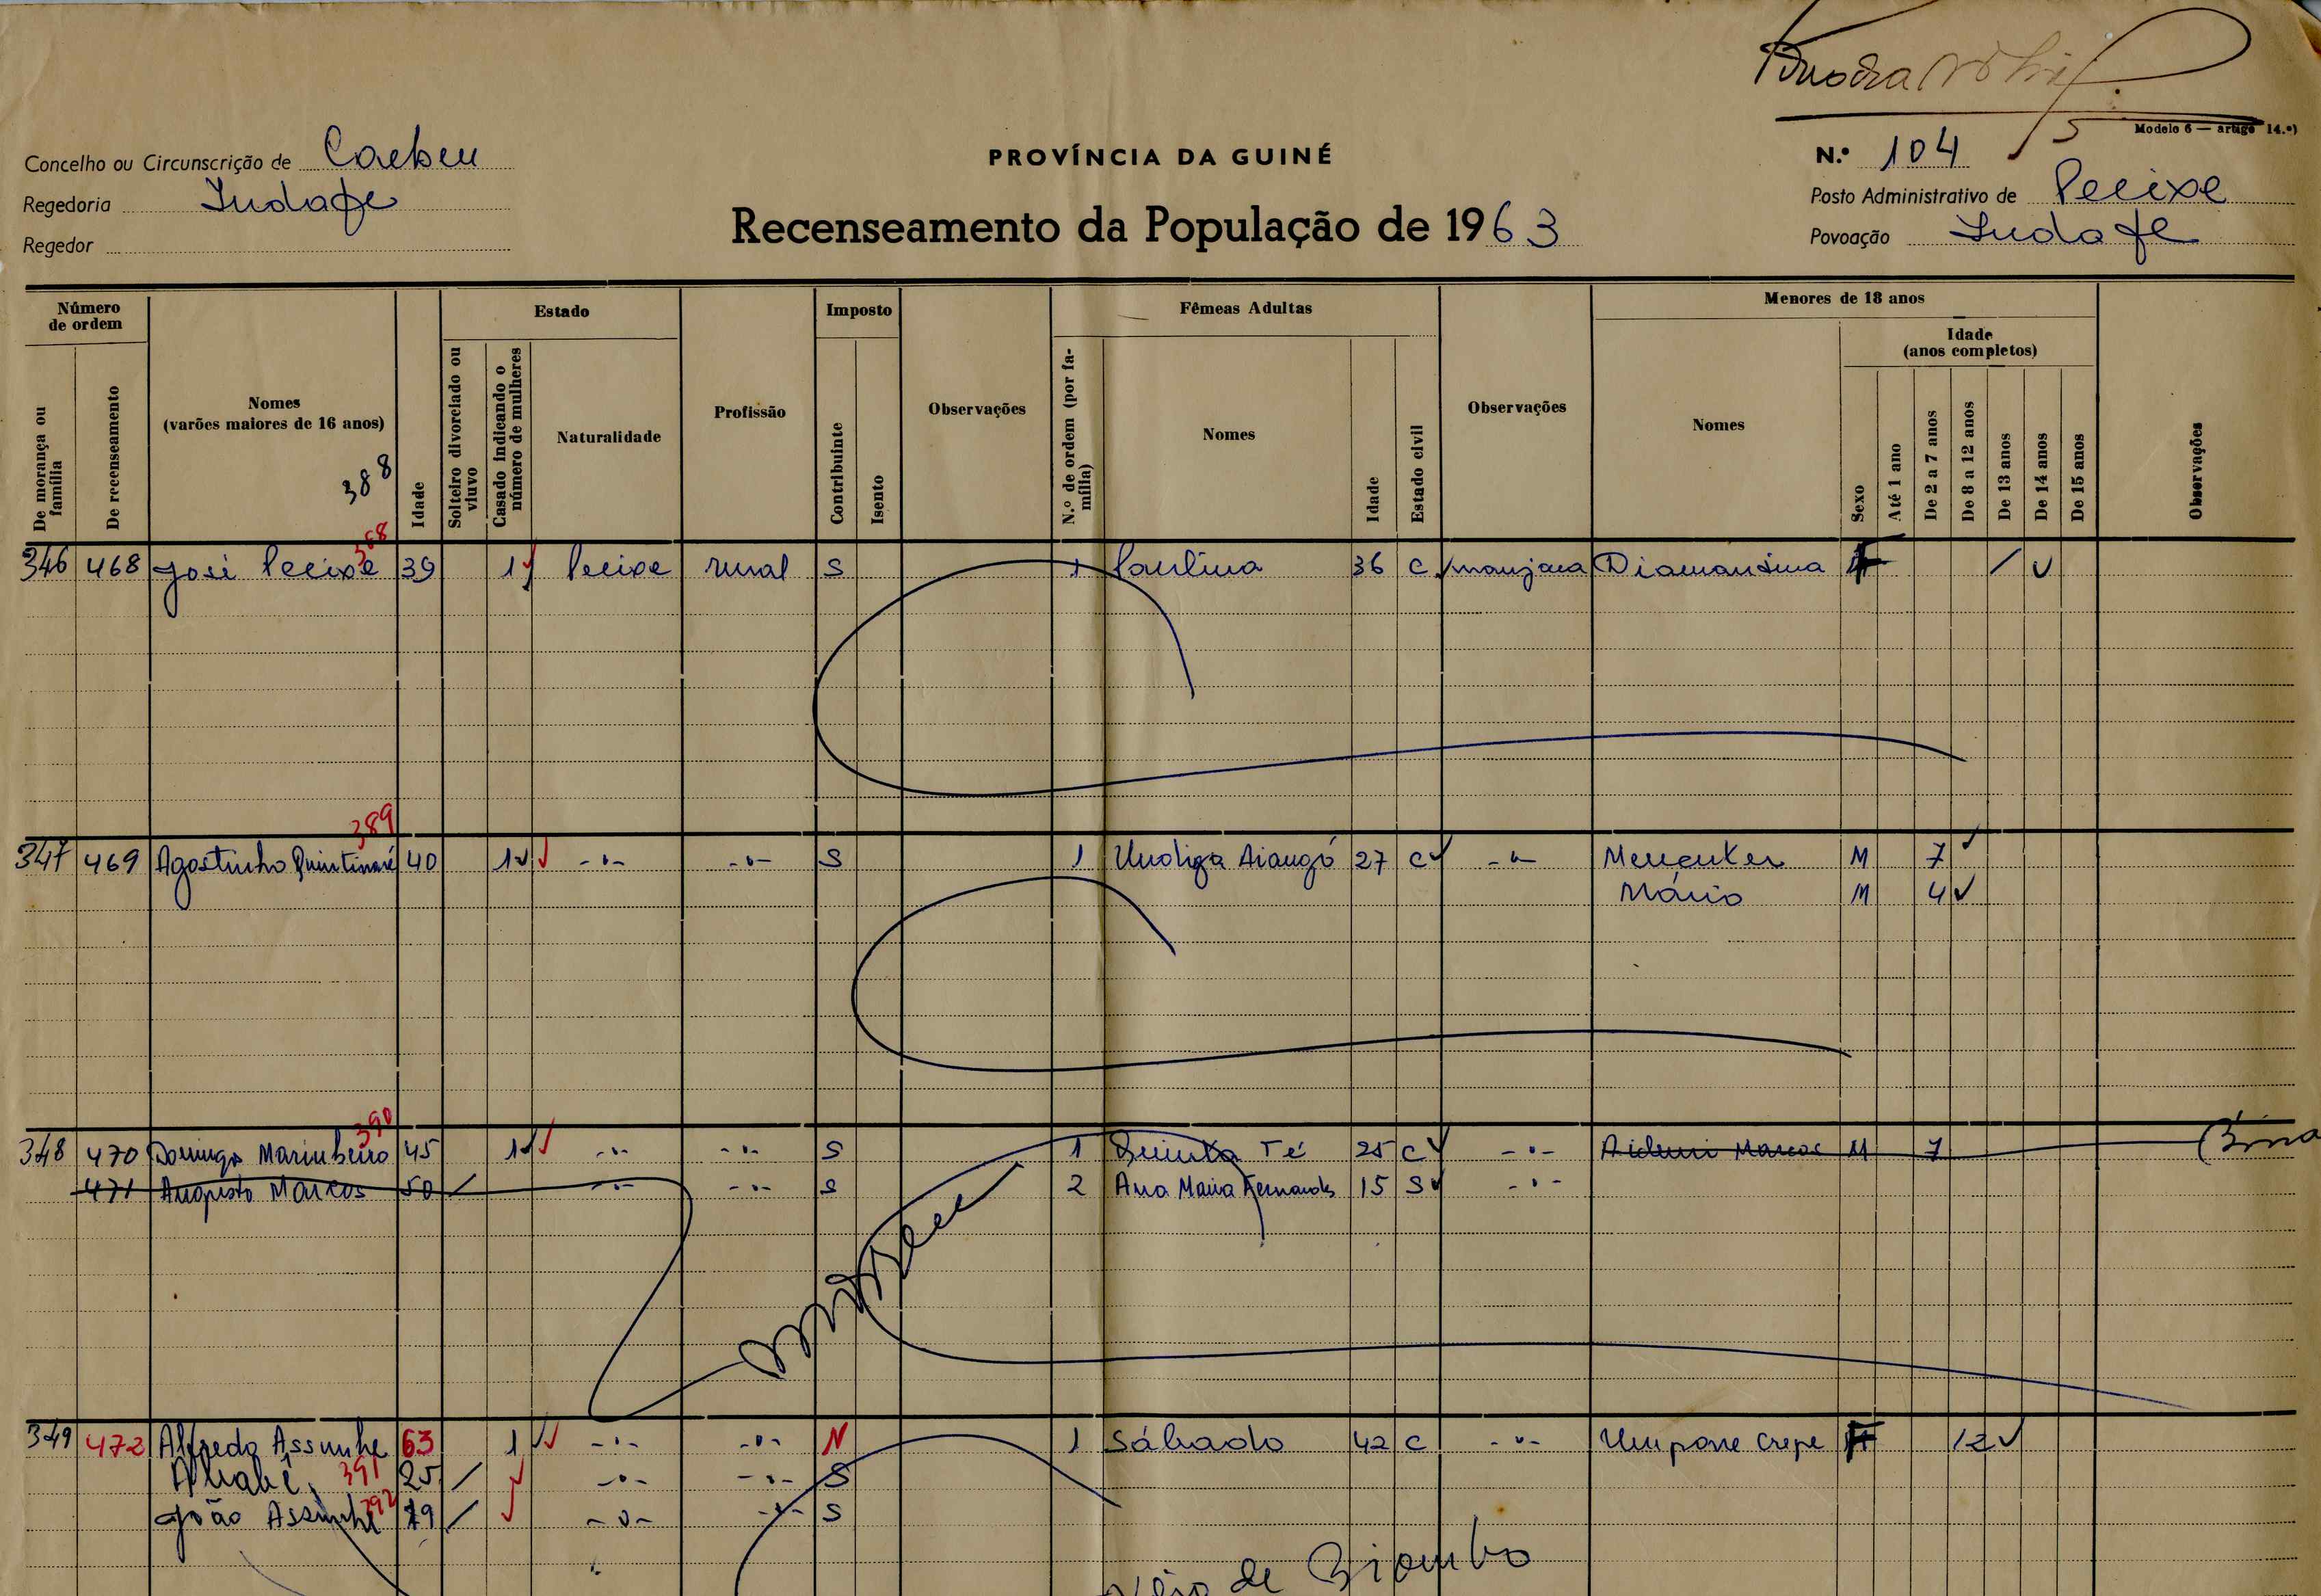 Modelo 6 — artigo 14.º)
Concelho ou Circunscrição de
Regedoria
Regedor
PROVÍNCIA DA GUINÉ
Recenseamento da População de 1963
N.º 104
Posto Administrativo de Pecixe
Povoação
Número de ordem
De morança ou família
De recenseamento
Nomes
(varões maiores de 16 anos)
388
Idade
Estado
Solteiro divorciado ou viuvo
Casado indicando o número de mulheres
Naturalidade
Profissão
Imposto
Contribuinte
Isento
Observações
Fêmeas Adultas
N.º de ordem (por família)
Nomes
Idade
Estado civil
Observações
Menores de 18 anos
Nomes
Sexo
Idade
(anos completos)
Até 1 ano
De 2 a 7 anos
De 8 a 12 anos
De 13 anos
De 14 anos
De 15 anos
Observações
346 468 José Pecixe 39 1 Pecixe rural S 1 Paulina 36 C manjaca Diamantina F
389
347 469 Agostinho 40 1 -"- -"- S 1 27 C -"- M 7
Mário M 4
390
348 470 Domingo Marinheiro 45 1 -"- -"- S 1 Quinta Té 25 C -"- Marcos M 7
471 Augusto Marcos 50 -"- -"- S 2 Ana Maria Fernandes 15 S -"-
349 472 Alfredo Assunhe 63 1 -"- -"- N 1 Sábado 42 C -"- F 12
391 25 -"- -"- S
João 392 19 -"- -"- S
de Biombo